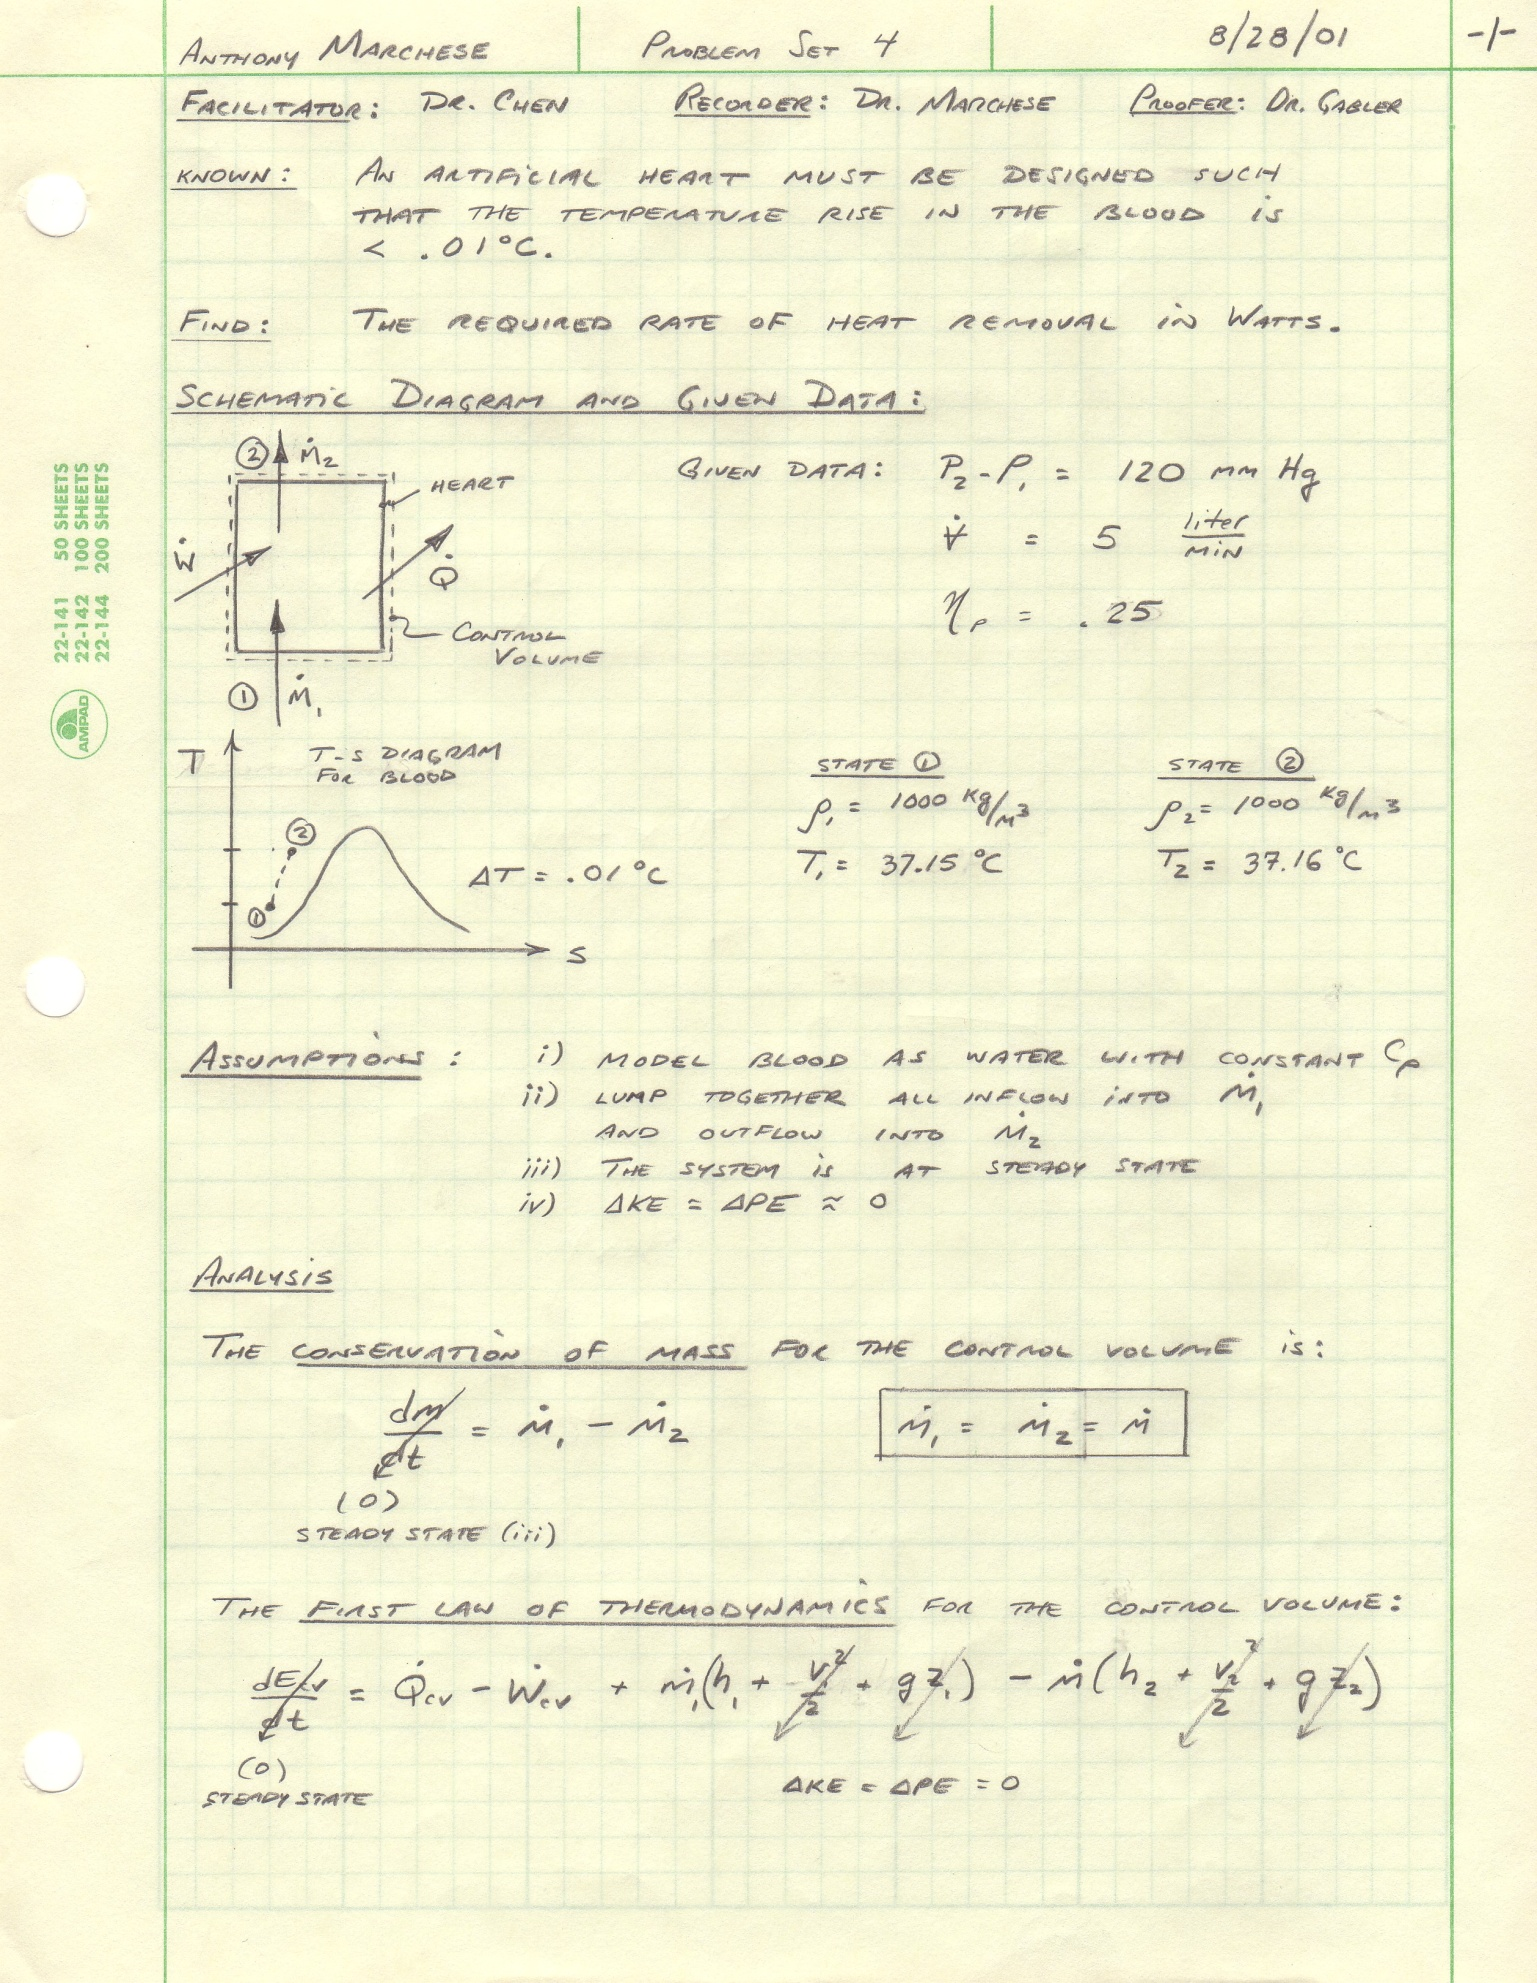 ANTHONY MARCHESE PROBLEM SET 4 8/28/01 -1-
FACILITATOR: DR. CHEN RECORDER: DR. MARCHESE PROOFER: DR. GABLER
KNOWN: AN ARTIFICIAL HEART MUST BE DESIGNED SUCH
THAT THE TEMPERATURE RISE IN THE BLOOD IS
< .01°C.
FIND: THE REQUIRED RATE OF HEAT REMOVAL IN WATTS.
SCHEMATIC DIAGRAM AND GIVEN DATA:
② Ṁ₂
HEART
Ẇ
Q̇
CONTROL
VOLUME
① Ṁ₁
GIVEN DATA: P₂-P₁ = 120 mm Hg
V̇ = 5 liter/min
ηₚ = .25
22-141 50 SHEETS
22-142 100 SHEETS
22-144 200 SHEETS
AMPAD
T
T-S DIAGRAM
FOR BLOOD
②
①
ΔT = .01°C
S
STATE ① STATE ②
ρ₁ = 1000 kg/m³ ρ₂ = 1000 kg/m³
T₁ = 37.15 °C T₂ = 37.16 °C
ASSUMPTIONS: i) MODEL BLOOD AS WATER WITH CONSTANT Cp
ii) LUMP TOGETHER ALL INFLOW INTO Ṁ₁
AND OUTFLOW INTO Ṁ₂
iii) THE SYSTEM IS AT STEADY STATE
iv) ΔKE = ΔPE ≈ 0
ANALYSIS
THE CONSERVATION OF MASS FOR THE CONTROL VOLUME IS:
dM/dt = Ṁ₁ - Ṁ₂ Ṁ₁ = Ṁ₂ = Ṁ
(0)
STEADY STATE (iii)
THE FIRST LAW OF THERMODYNAMICS FOR THE CONTROL VOLUME:
dEcv/dt = Q̇cv - Ẇcv + ṁ₁(h₁ + v₁²/2 + gz₁) - ṁ(h₂ + v₂²/2 + gz₂)
(0)
STEADY STATE
ΔKE = ΔPE = 0